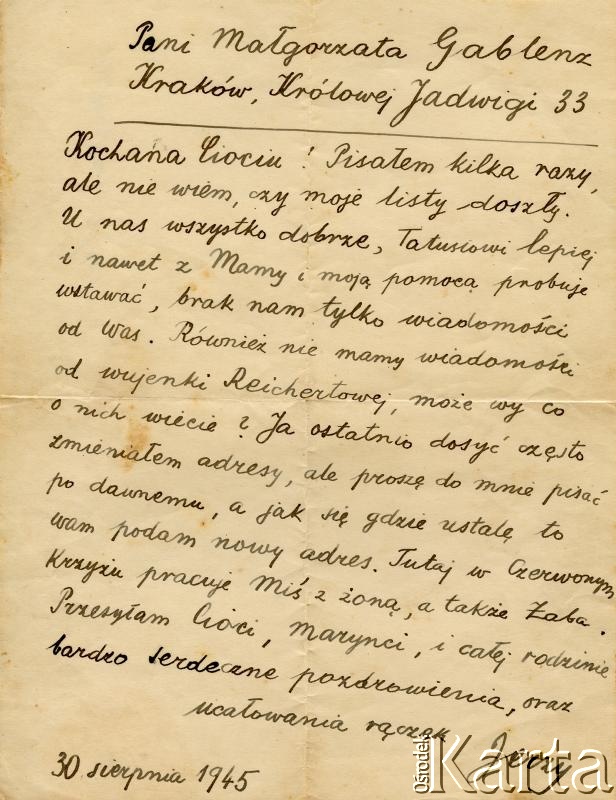 Pani Małgorzata Gablenz
Kraków, Królowej Jadwigi 33
Kochana Ciociu! Pisałem kilka razy,
ale nie wiem, czy moje listy doszły.
U nas wszystko dobrze, Tatusiowi lepiej
i nawet z Mamy i moją pomocą probuje
wstawać, brak nam tylko wiadomości
od Was. Również nie mamy wiadomości
od wujenki Reichertowej, może wy co
o nich wiecie? Ja ostatnio dosyć często
zmieniałem adresy, ale proszę do mnie pisać
po dawnemu, a jak się gdzie ustalę to
wam podam nowy adres. Tutaj w Czerwonym
Krzyżu pracuje Miś z żoną, a także Żaba.
Przesyłam Cioci, Marynci, i całej rodzinie
bardzo serdeczne pozdrowienia, oraz
ucałowania rączek Jerzy
30 sierpnia 1945
Ośrodek Karta